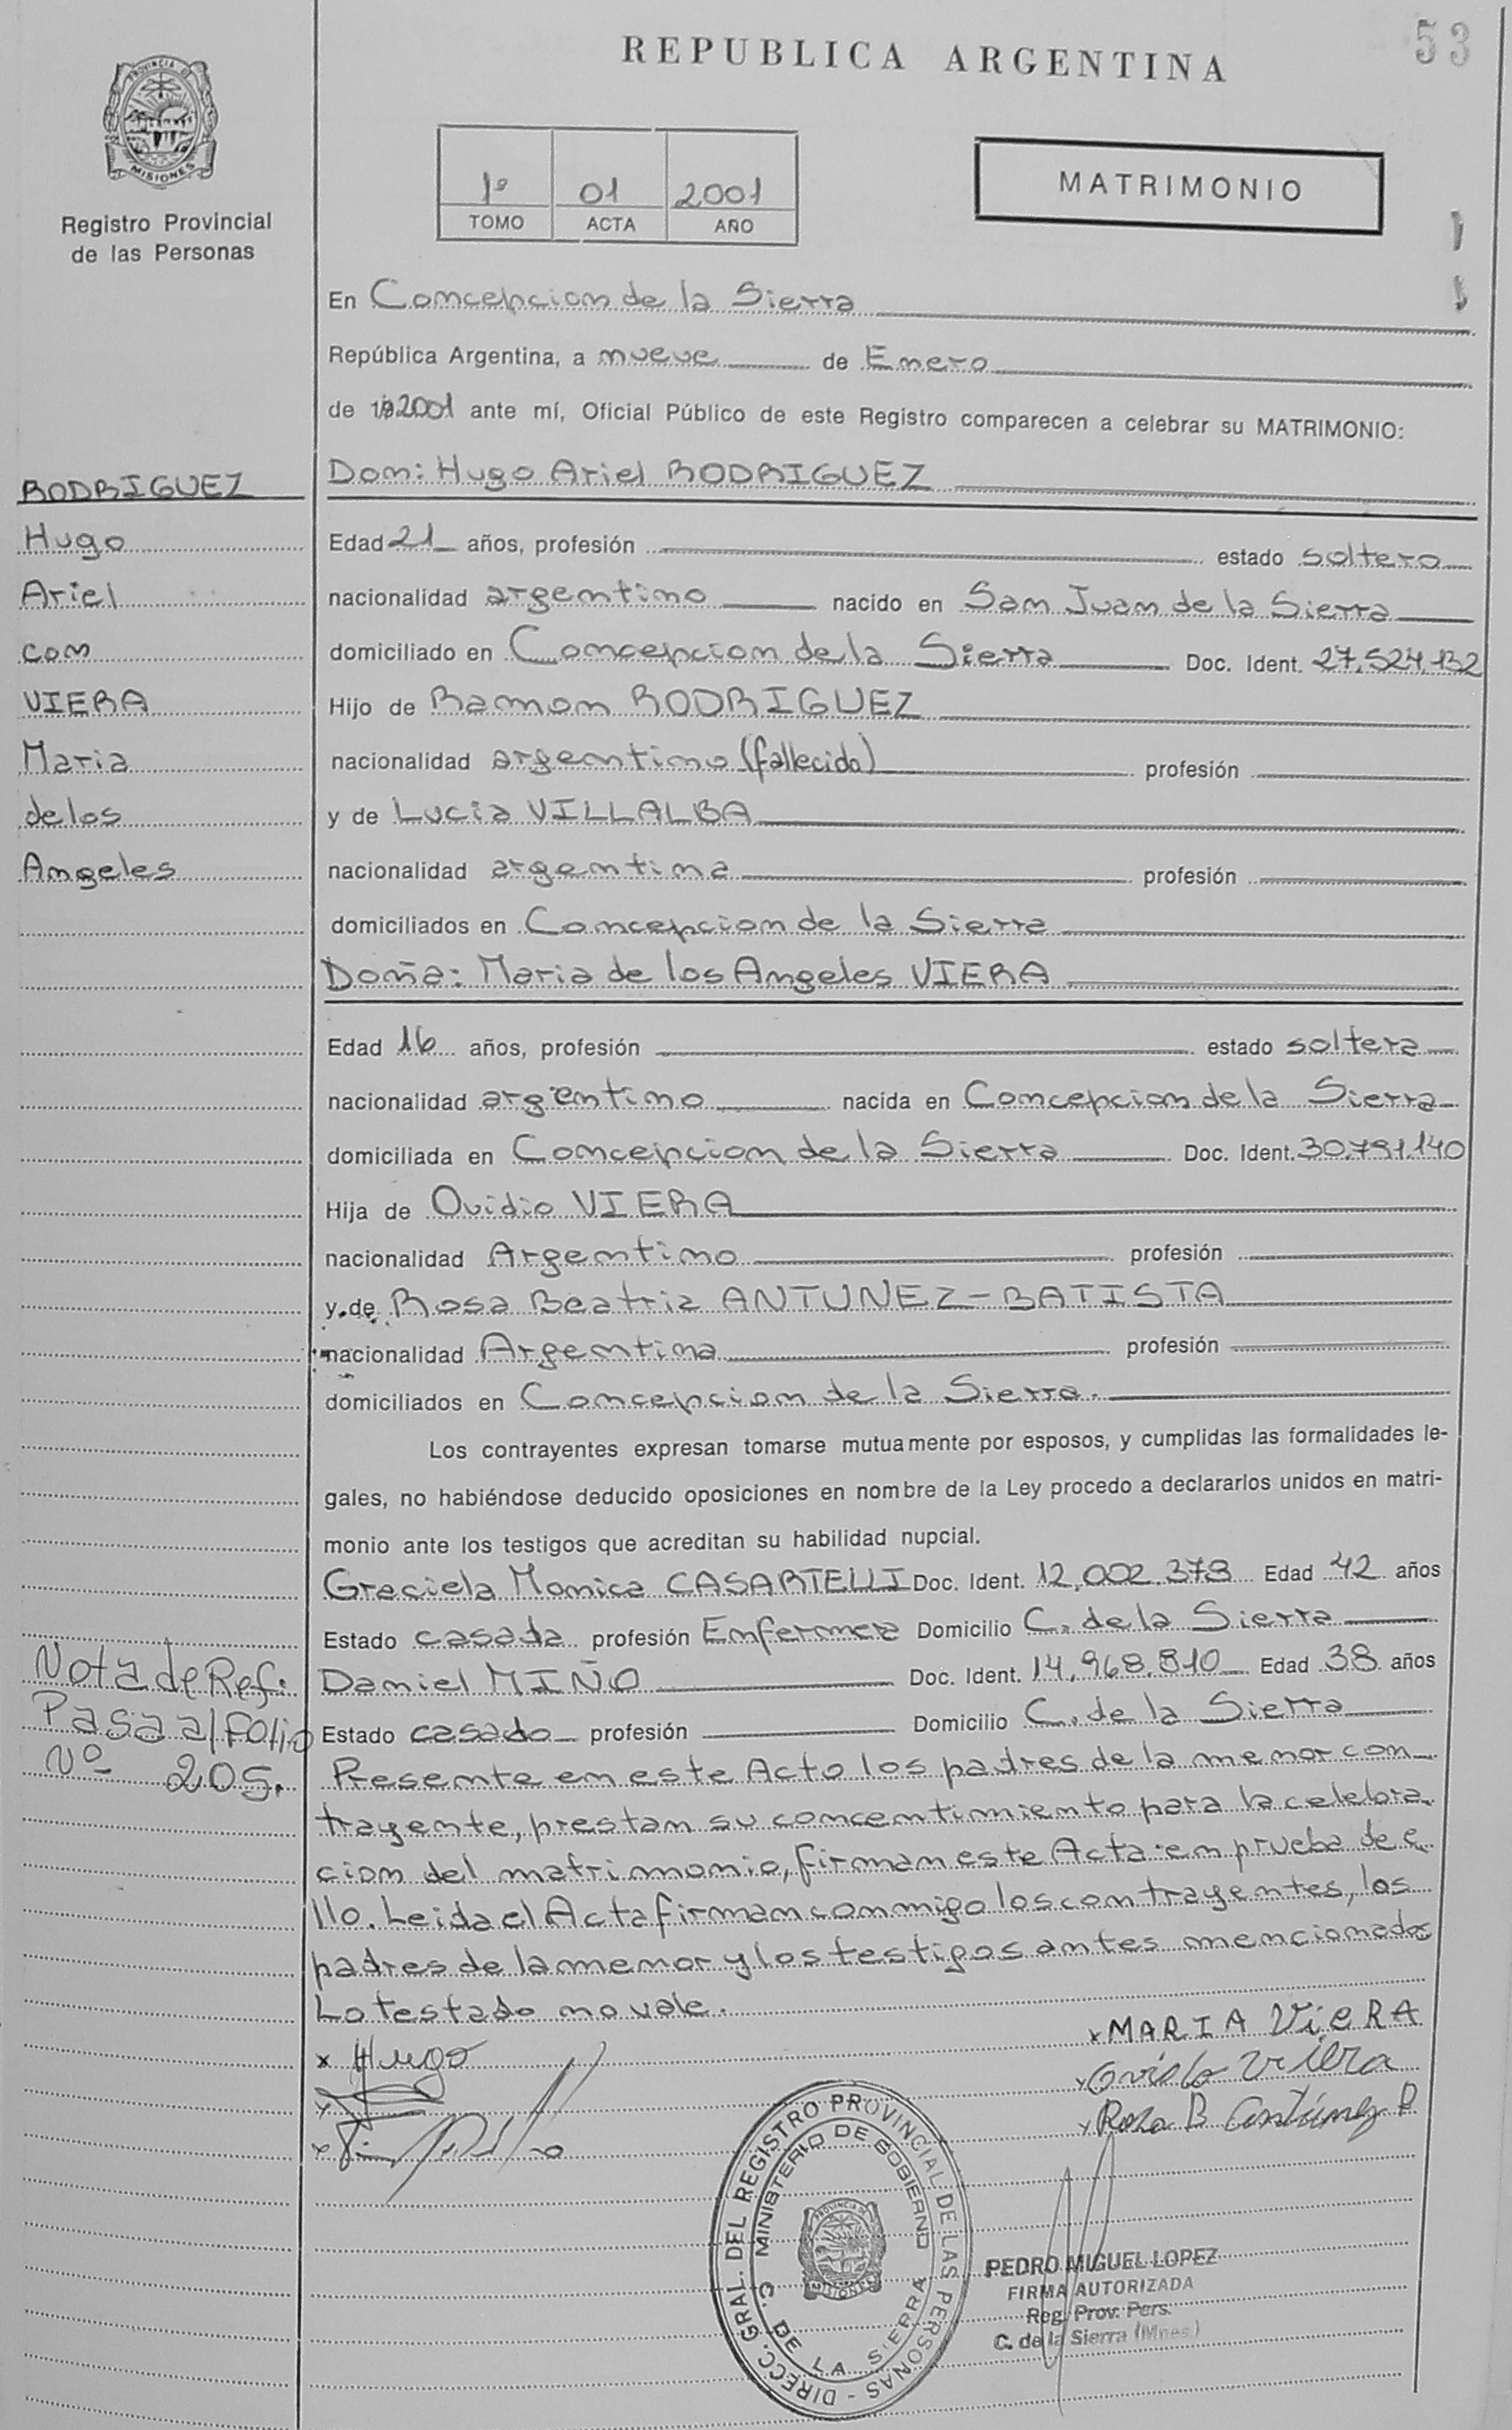 53
REPUBLICA ARGENTINA
PROVINCIA DE
MISIONES
Registro Provincial
de las Personas
1º 01 2001
TOMO ACTA AÑO
MATRIMONIO
En Concepcion de la Sierra
República Argentina, a nueve de Enero
de 19 2001 ante mí, Oficial Público de este Registro comparecen a celebrar su MATRIMONIO:
Don: Hugo Ariel RODRIGUEZ
Edad 21 años, profesión estado soltero
nacionalidad argentino nacido en San Juan de la Sierra
domiciliado en Concepcion de la Sierra Doc. Ident. 27.524.132
Hijo de Ramon RODRIGUEZ
nacionalidad argentino (fallecido) profesión
y de Lucia VILLALBA
nacionalidad argentina profesión
domiciliados en Concepcion de la Sierra
Doña: Maria de los Angeles VIERA
Edad 16 años, profesión estado soltera
nacionalidad argentino nacida en Concepcion de la Sierra
domiciliada en Concepcion de la Sierra Doc. Ident. 30.791.140
Hija de Ovidio VIERA
nacionalidad Argentino profesión
y de Rosa Beatriz ANTUNEZ-BATISTA
nacionalidad Argentina profesión
domiciliados en Concepcion de la Sierra.
Los contrayentes expresan tomarse mutuamente por esposos, y cumplidas las formalidades le-
gales, no habiéndose deducido oposiciones en nombre de la Ley procedo a declararlos unidos en matri-
monio ante los testigos que acreditan su habilidad nupcial.
Graciela Monica CASARTELLI Doc. Ident. 12.002.378 Edad 42 años
Estado casada profesión Enfermera Domicilio C. de la Sierra
Daniel MIÑO Doc. Ident. 14.968.810 Edad 38 años
Estado casado profesión Domicilio C. de la Sierra
Presente en este Acto los padres de la menor con
trayente, prestan su concentimiento para la celebra
cion del matrimonio, firman este Acta en prueba de e
llo. Leida el Acta firman conmigo los contrayentes, los
padres de la menor y los testigos antes mencionados
Lo testado no vale.
x Hugo
x MARIA ViERA
x Ovidio Viera
x Rosa B Antúnez B
RODRIGUEZ
Hugo
Ariel
con
VIERA
Maria
de los
Angeles
Nota de Ref:
Pasa al Folio
Nº 205.
DIRECC. GRAL. DEL REGISTRO PROVINCIAL DE LAS PERSONAS -
MINISTERIO DE GOBIERNO
C. DE LA SIERRA
PROVINCIA DE
MISIONES
PEDRO MIGUEL LOPEZ
FIRMA AUTORIZADA
Reg. Prov. Pers.
C. de la Sierra (Mnes.)